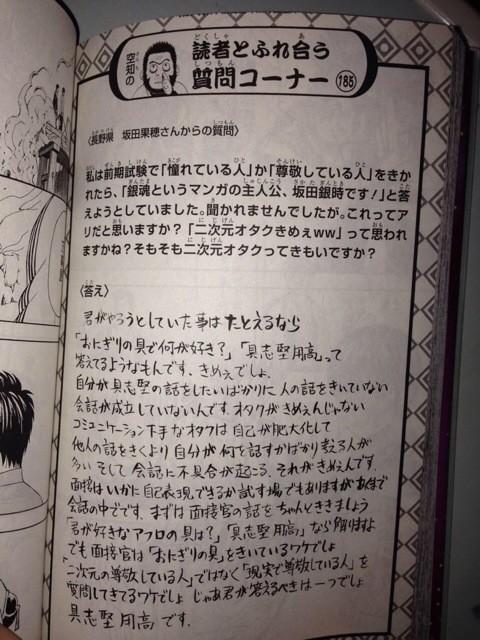 空知の
読者とふれ合う
質問コーナー 185
〈長野県 坂田果穂さんからの質問〉
私は前期試験で「憧れている人」か「尊敬している人」をきか
れたら、「銀魂というマンガの主人公、坂田銀時です!」と答
えようとしていました。聞かれませんでしたが。これってア
リだと思いますか?「二次元オタクきめぇww」って思われ
ますかね?そもそも二次元オタクってきもいですか?
〈答え〉
君がやろうとしていた事はたとえるなら
「おにぎりの具で何が好き?」「具志堅用高」って
答えてるようなもんです。きめぇでしょ。
自分が具志堅の話をしたいばかりに人の話をきいていない
会話が成立していないんです。オタクがきめぇんじゃない
コミュニケーション下手なオタクは自己が肥大化して
他人の話をきくより自分が何を話すかばかり考える人が
多い そして会話に不具合が起こる。それがきめぇんです。
面接はいかに自己表現できるか試す場でもありますがあくまで
会話の中でです。まずは面接官の話をちゃんとききましょう
「君が好きなアフロの具は?」「具志堅用高」なら解りますよ
でも面接官は「おにぎりの具」をきいているワケでしょ
「二次元の尊敬している人」ではなく「現実で尊敬している人」を
質問してきてるワケでしょ じゃあ君が答えるべきは一つでしょ
具志堅用高です。